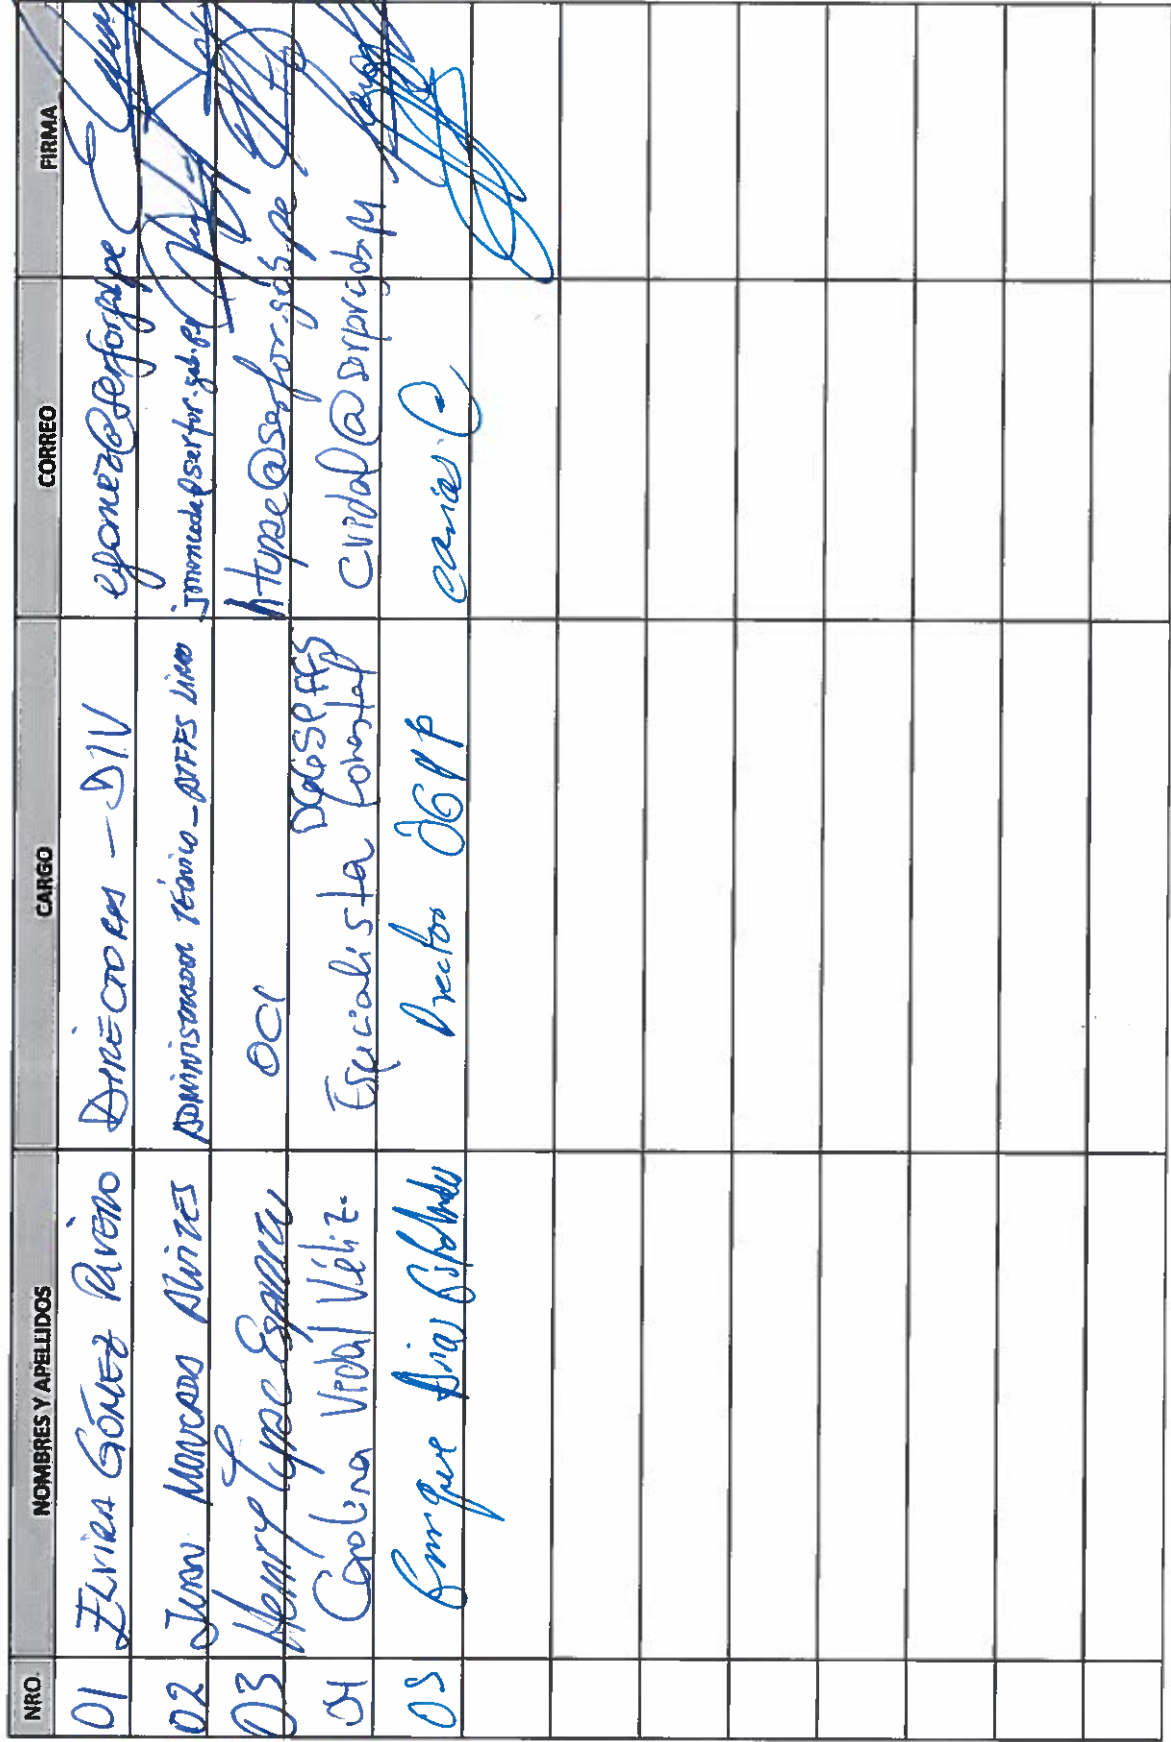 NRO. NOMBRES Y APELLIDOS CARGO CORREO FIRMA
01 ELVIRA GÓMEZ RIVERO DIRECTORA - DIV egomez@serfor.gob.pe
02 JUAN MONCADA ALVITES ADMINISTRADOR TÉCNICO - ATFFS LIMA jmoncada@serfor.gob.pe
03 Henry Typse OCI htypse@serfor.gob.pe
04 Carolina Vidal Véliz. Especialista forestal DGGSPFFS cvidal@serfor.gob.pe
05 Enrique Arias Director OGPP earias@